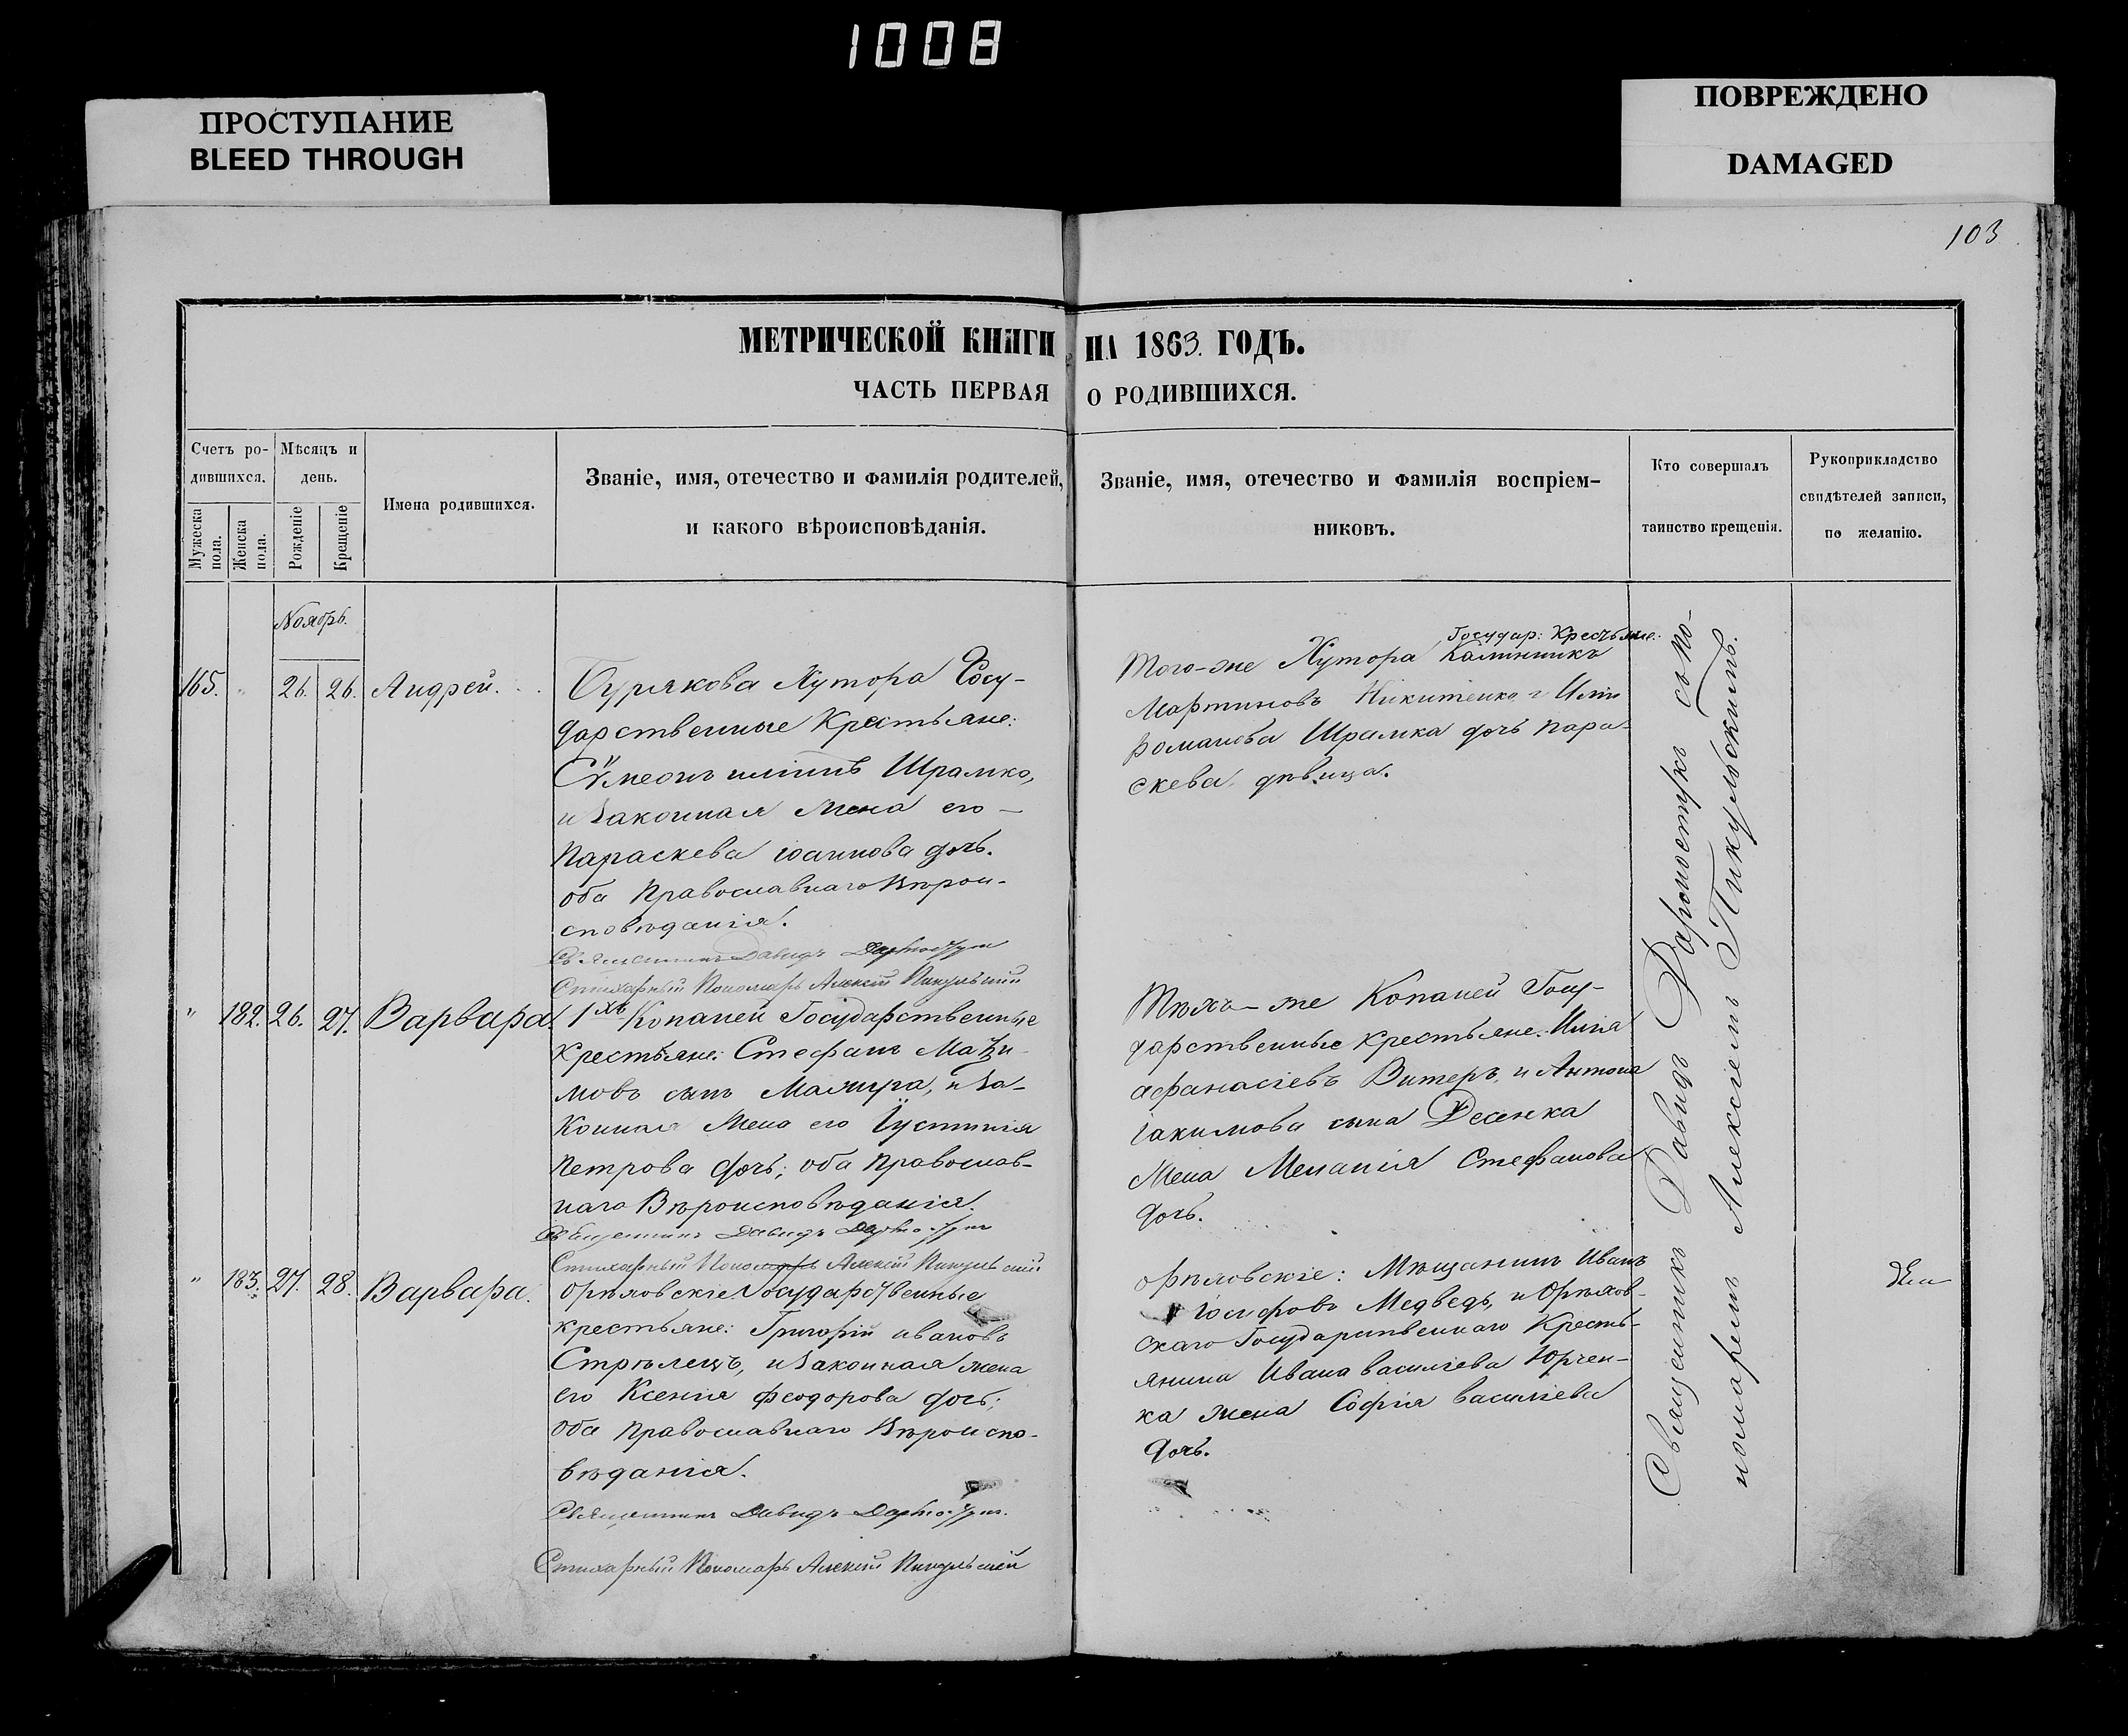 1008
ПРОСТУПАНИЕ
BLEED THROUGH
ПОВРЕЖДЕНО
DAMAGED
103
МЕТРИЧЕСКОЙ КНИГИ НА 1863. ГОДЪ.
ЧАСТЬ ПЕРВАЯ О РОДИВШИХСЯ.
Счетъ ро-
дившихся.
Мужеска пола.
Женска пола.
Мѣсяцъ и
день.
Рожденіе
Крещеніе
Имена родившихся.
Званіе, имя, отечество и фамилія родителей,
и какого вѣроисповѣданія.
Званіе, имя, отечество и фамилія воспріем-
никовъ.
Кто совершалъ
таинство крещенія.
Рукоприкладство
свидѣтелей записи,
по желанію.
Ноябрь.
165. " 26. 26. Андрей.
Бурякова Хутора Госу-
дарственные Крестьяне:
Сѵмеонъ иліинъ Шрамко,
и Законная Жена его —
Параскева іоаннова дочь.
оба Православнаго Вѣрои-
сповѣданія.
Священникъ Давидъ
Стихарный Пономарь Алексій Пикульскій
Того-же Хутора Государ: Крестьяне: Калинникъ
Мартиновъ Никитенко и Иліи
Романова Шрамка дочь пара-
скева, дѣвица.
" 182. 26. 27. Варвара.
1хъ Копаней Государственные
крестьяне: Стефанъ Макси-
мовъ сынъ Мажура, и За-
конная Жена его Іустинія
Петрова дочь; оба Православ-
наго Вѣроисповѣданія.
Священникъ Давидъ
Стихарный Пономарь Алексій Пикульскій
Тѣхъ-же Копаней Госу-
дарственные крестьяне: Илія
афанасіевъ Витеръ, и Антона
іакимова сына Десенка
Жена Меланія Стефанова
дочь.
" 183. 27. 28. Варвара.
Орѣховскіе Государственные
крестьяне: Григорій ивановъ
Стрѣлецъ, и Законная жена
его Ксенія феодорова дочь;
оба Православнаго Вѣроиспо-
вѣданія.
Священникъ Давидъ
Стихарный Пономарь Алексій Пикульскій
орѣховскіе: Мѣщанинъ Иванъ
Іосифовъ Медведь, и Орѣхов-
скаго Государственнаго Кресть-
янина Ивана василіева Юрчен-
ка жена Софія василіева
дочь.
Священникъ Давидъ съ по-
номаремъ Алексіемъ Пикульскимъ.